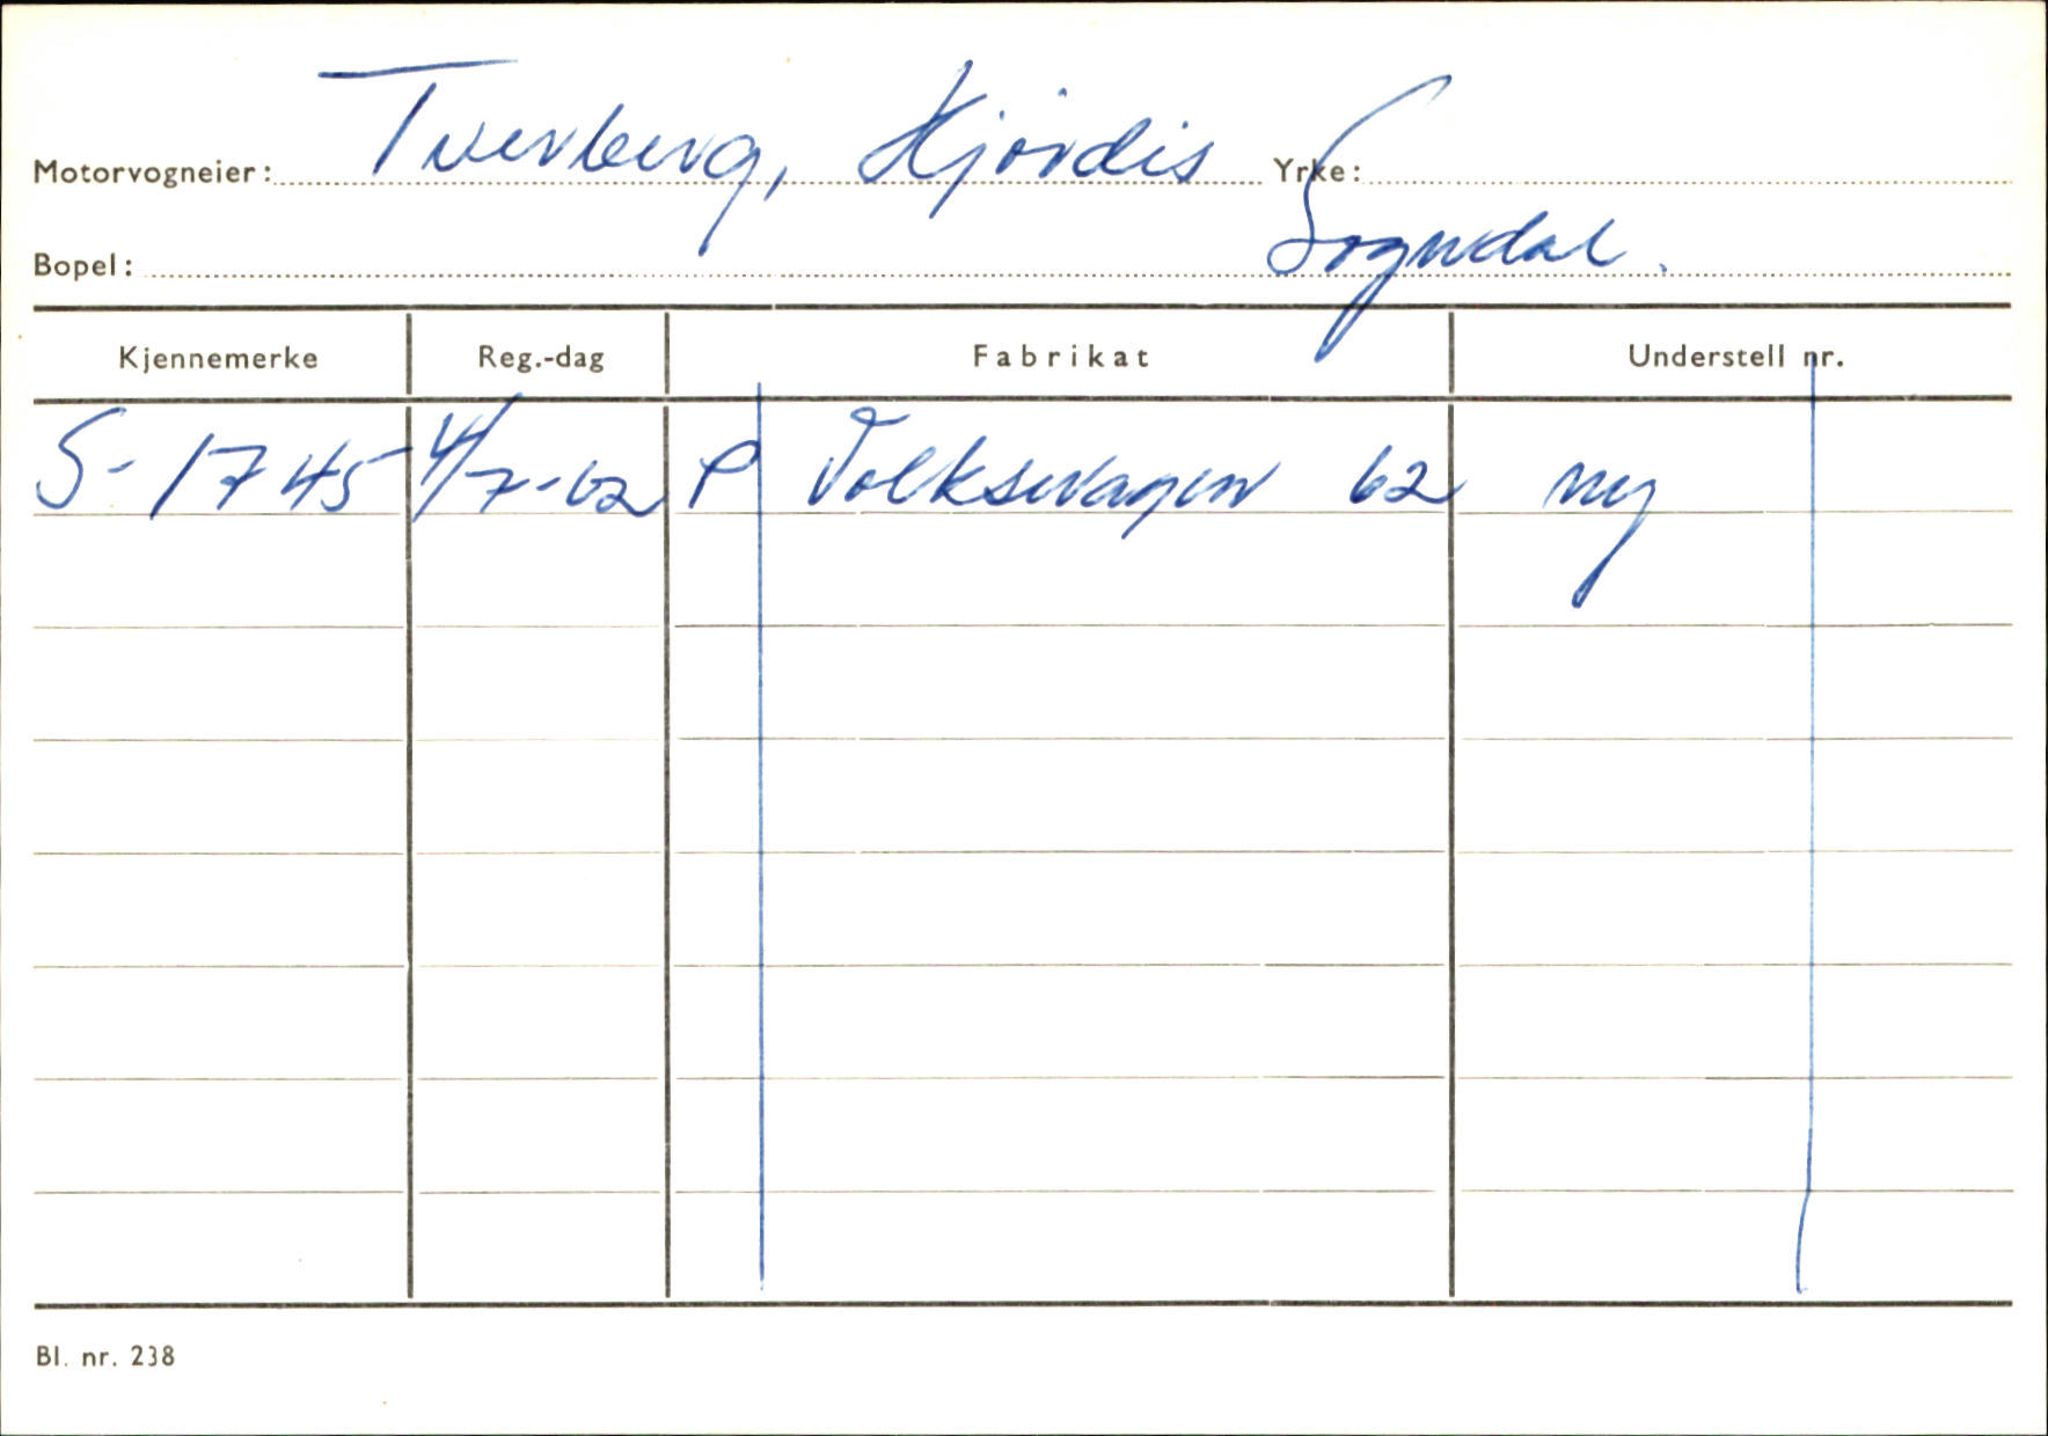 Motorvogneier: Tverberg, Hjördis Yrke:
Bopel: Sogndal.
Kjennemerke Reg.-dag Fabrikat Understell nr.
S-1745 4/7-62 P Volkswagen 62 ny
Bl. nr. 238